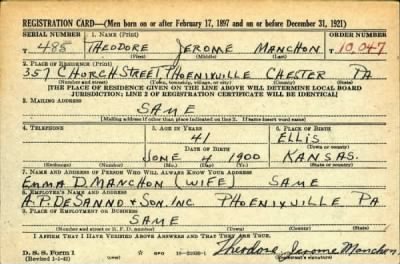 REGISTRATION CARD—(Men born on or after February 17, 1897 and on or before December 31, 1921)
SERIAL NUMBER 1. NAME (Print) ORDER NUMBER
T 485 THEODORE JEROME MANCHON T 10,047
(First) (Middle) (Last)
2. PLACE OF RESIDENCE (Print)
357 CHURCH STREET, PHOENIXVILLE CHESTER PA
(Number and street) (Town, township, village, or city) (County) (State)
[THE PLACE OF RESIDENCE GIVEN ON THE LINE ABOVE WILL DETERMINE LOCAL BOARD
JURISDICTION; LINE 2 OF REGISTRATION CERTIFICATE WILL BE IDENTICAL]
3. MAILING ADDRESS
SAME
[Mailing address if other than place indicated on line 2. If same insert word same]
4. TELEPHONE 5. AGE IN YEARS 6. PLACE OF BIRTH
41 ELLIS
DATE OF BIRTH (Town or county)
JUNE 4 1900 KANSAS.
(Exchange) (Number) (Mo.) (Day) (Yr.) (State or country)
7. NAME AND ADDRESS OF PERSON WHO WILL ALWAYS KNOW YOUR ADDRESS
EMMA D. MANCHON (WIFE) SAME
8. EMPLOYER'S NAME AND ADDRESS
A. P. DESANNO & SON. INC PHOENIXVILLE PA
9. PLACE OF EMPLOYMENT OR BUSINESS
SAME
(Number and street or R. F. D. number) (Town) (County) (State)
I AFFIRM THAT I HAVE VERIFIED ABOVE ANSWERS AND THAT THEY ARE TRUE.
D. S. S. Form 1
(Revised 1-1-42) GPO 16-21630-1 Theodore Jerome Manchon